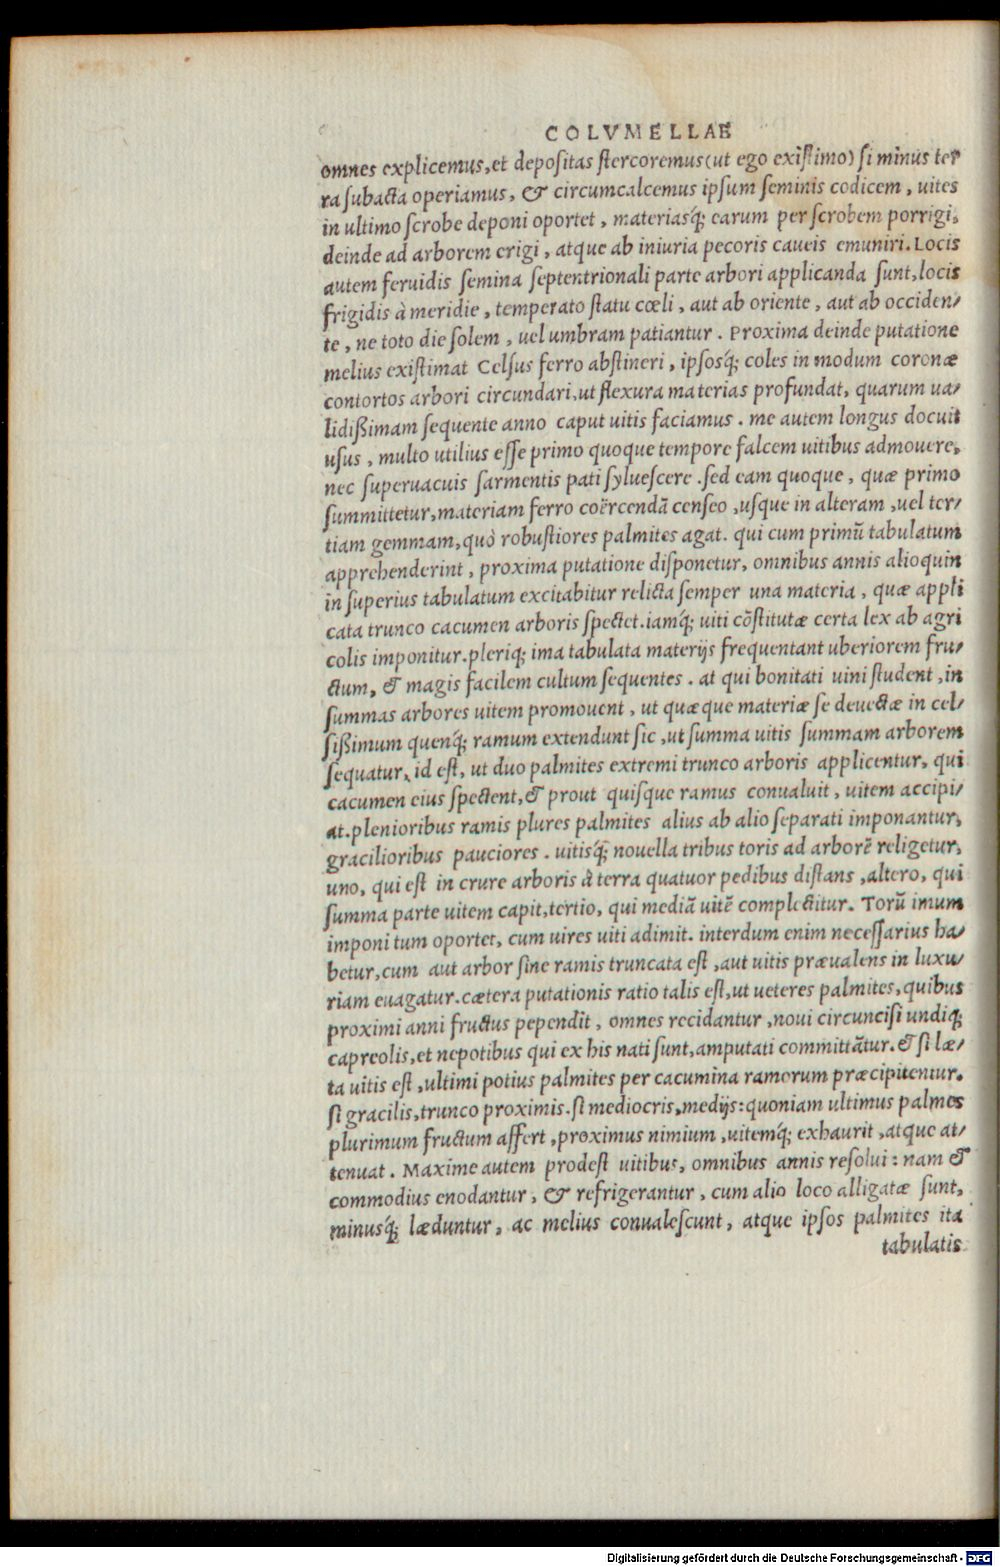 COLVMELLAE
omnes explicemus, et depositas stercoremus (ut ego existimo) si minus ter
ra subacta operiamus, & circumcalcemus ipsum seminis codicem, uites
in ultimo scrobe deponi oportet, materiasq́; earum per scrobem porrigi,
deinde ad arborem erigi, atque ab iniuria pecoris caueis emuniri. Locis
autem feruidis semina septentrionali parte arbori applicanda sunt, locis
frigidis à meridie, temperato statu cœli, aut ab oriente, aut ab occiden/
te, ne toto die solem, uel umbram patiantur. Proxima deinde putatione
melius existimat Celsus ferro abstineri, ipsosq́; coles in modum coronæ
contortos arbori circundari, ut flexura materias profundat, quarum ua/
lidißimam sequente anno caput uitis faciamus. me autem longus docuit
usus, multo utilius esse primo quoque tempore falcem uitibus admouere,
nec superuacuis sarmentis pati syluescere. sed eam quoque, quæ primo
summittetur, materiam ferro coërcendā censeo, usque in alteram, uel ter/
tiam gemmam, quò robustiores palmites agat. qui cum primū tabulatum
apprehenderint, proxima putatione disponetur, omnibus annis alioquin
in superius tabulatum excitabitur relicta semper una materia, quæ appli
cata trunco cacumen arboris spectet. iamq́; uiti cōstitutæ certa lex ab agri
colis imponitur. pleriq; ima tabulata materijs frequentant uberiorem fru/
ctum, & magis facilem cultum sequentes. at qui bonitati uini student, in
summas arbores uitem promouent, ut quæque materiæ se deuectæ in cel/
sißimum quenq́; ramum extendunt sic, ut summa uitis summam arborem
sequatur, id est, ut duo palmites extremi trunco arboris applicentur, qui
cacumen eius spectent, & prout quisque ramus conualuit, uitem accipi/
at. plenioribus ramis plures palmites alius ab alio separati imponantur,
gracilioribus pauciores. uitisq́; nouella tribus toris ad arborē religetur,
uno, qui est in crure arboris à terra quatuor pedibus distans, altero, qui
summa parte uitem capit, tertio, qui mediā uitē complectitur. Torū imum
imponi tum oportet, cum uires uiti adimit. interdum enim necessarius ha/
betur, cum aut arbor sine ramis truncata est, aut uitis præualens in luxu/
riam euagatur. cætera putationis ratio talis est, ut ueteres palmites, quibus
proximi anni fructus pependit, omnes recidantur, noui circuncisi undiq;
capreolis, et nepotibus qui ex his nati sunt, amputati committātur. & si læ/
ta uitis est, ultimi potius palmites per cacumina ramorum præcipitentur.
si gracilis, trunco proximis. si mediocris, medijs: quoniam ultimus palmes
plurimum fructum affert, proximus nimium, uitemq́; exhaurit, atque at/
tenuat. Maxime autem prodest uitibus, omnibus annis resolui: nam &
commodius enodantur, & refrigerantur, cum alio loco alligatæ sunt,
minusq́; læduntur, ac melius conualescunt, atque ipsos palmites ita
tabulatis
Digitalisierung gefördert durch die Deutsche Forschungsgemeinschaft - DFG